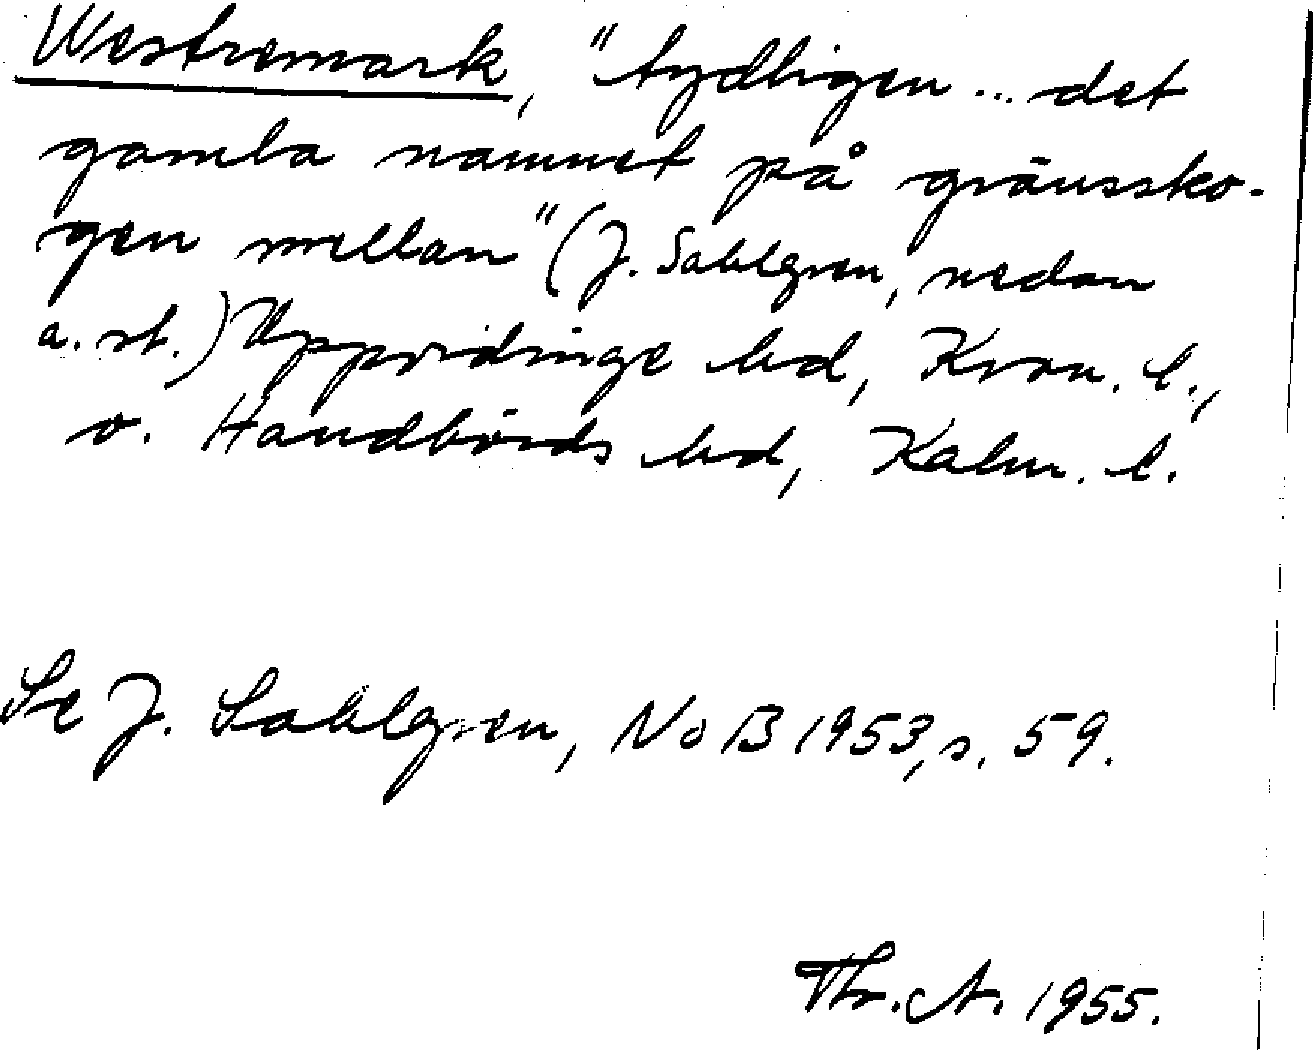 Westremark, "tydligen ... det
gamla namnet på gränssko-
gen mellan" (J. Sahlgren, nedan
a. st.) Uppvidinge hd, Kron. l.,
o. Handbörds hd, Kalm. l.
Se J. Sahlgren, NoB 1953, s. 59.
Thr. A. 1955.